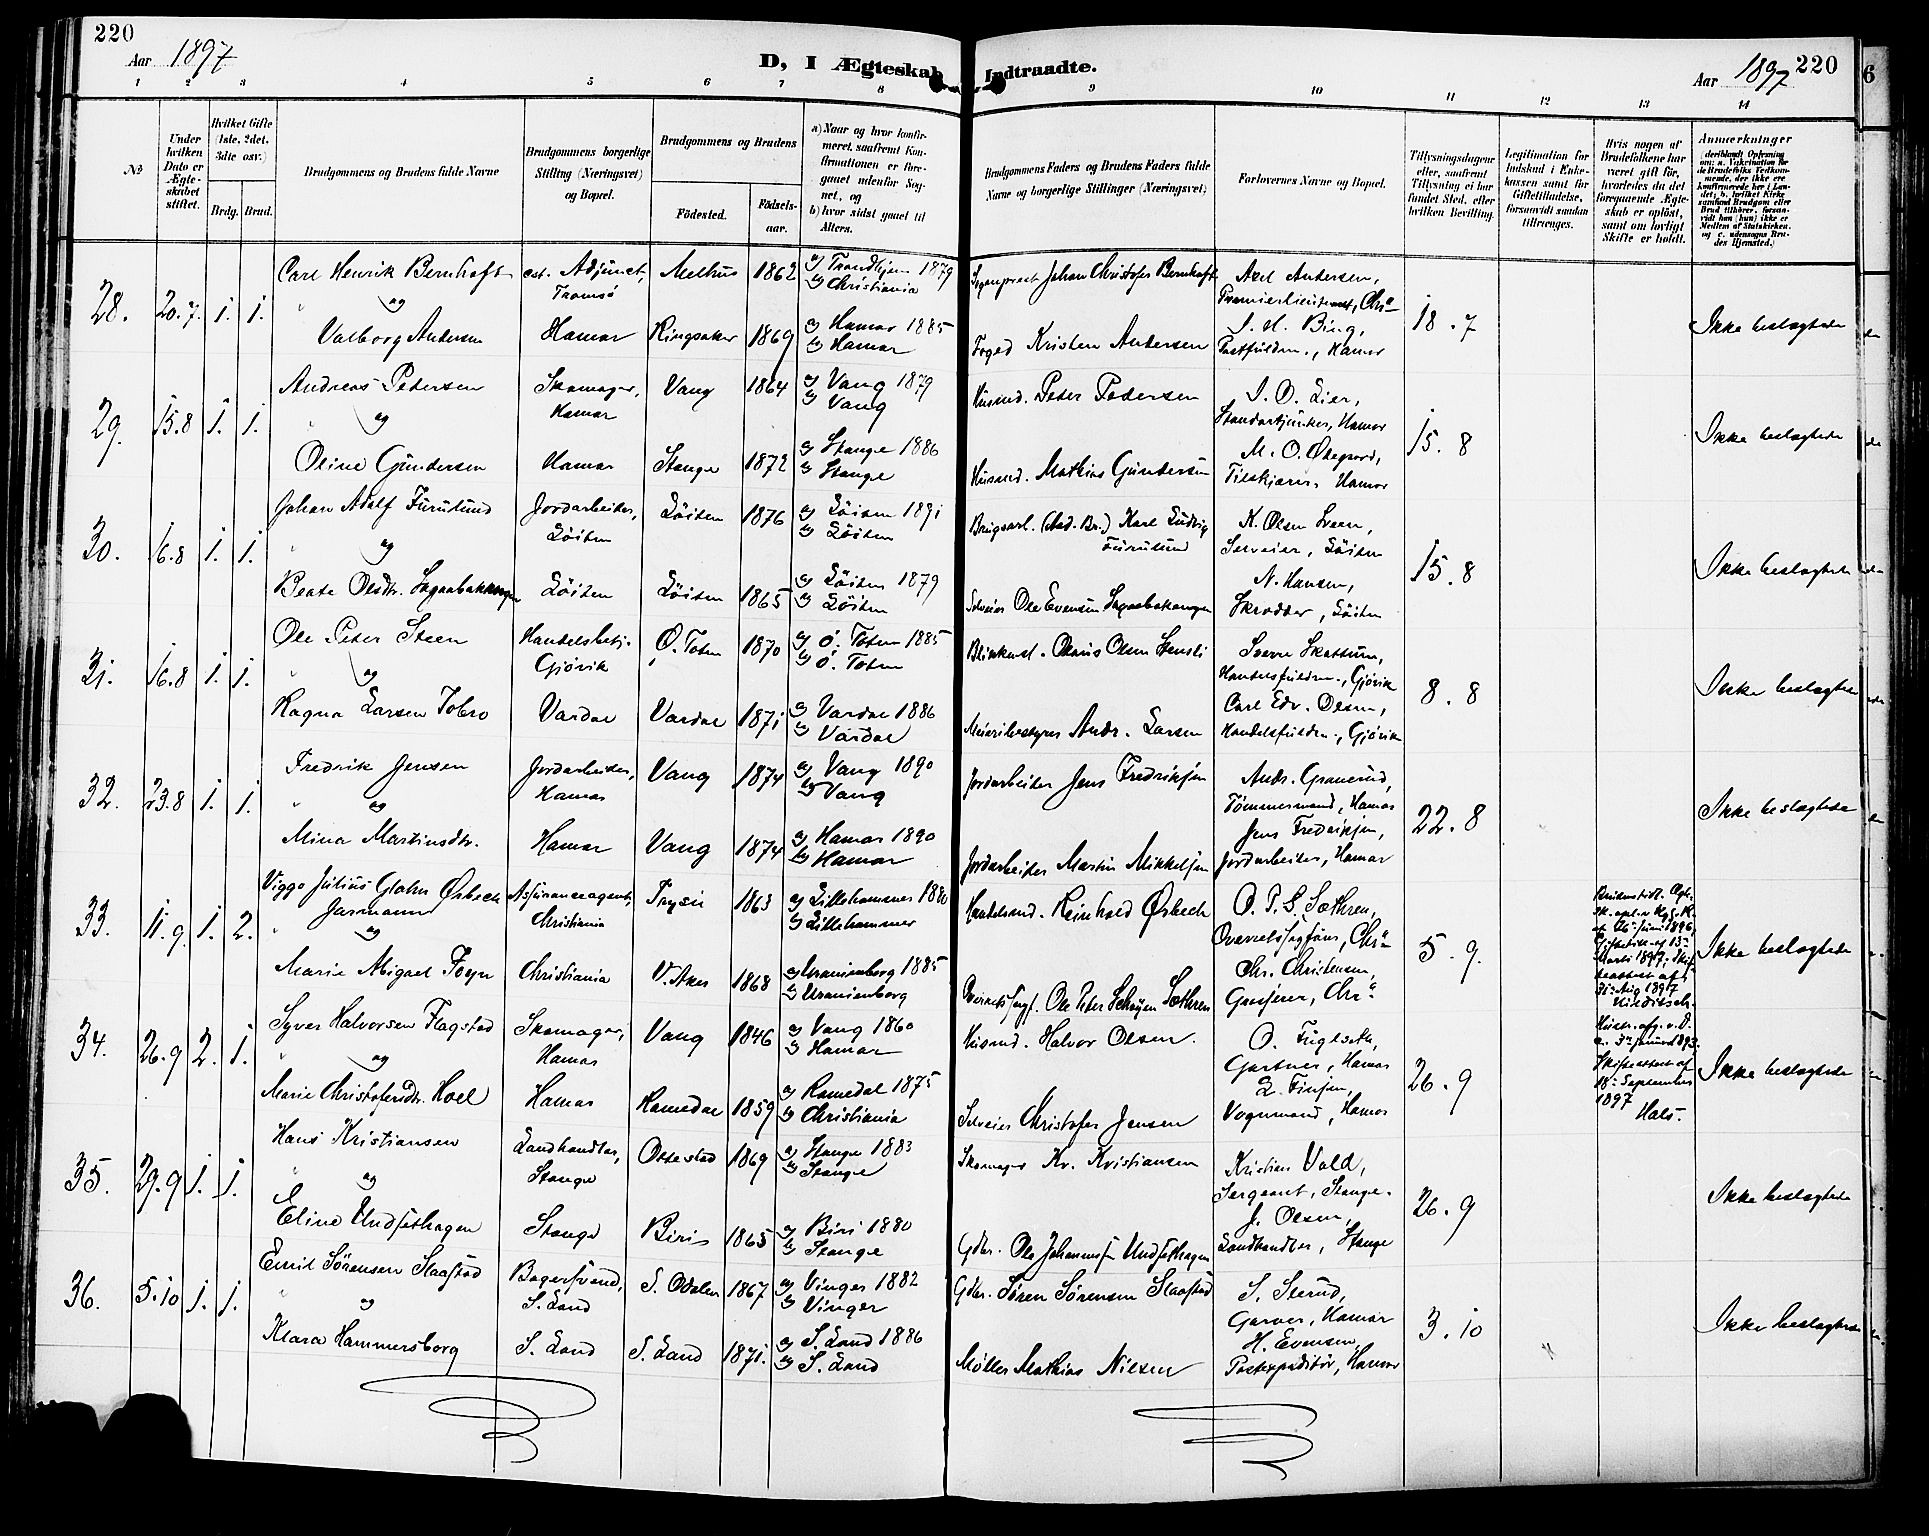 220
Aar 1897
D, I Ægteskab Indtraadte.
Aar 1897 220
6
1 2 3 4 5 6 7 8 9 10 11 12 13 14
No.
Under hvilken Dato er Ægteskabet stiftet.
Hvilket Gifte (1ste, 2det, 3die osv.)
Brdg. Brud.
Brudgommens og Brudens fulde Navne
Brudgommens borgerlige Stilling (Næringsvei) og Bopæl.
Brudgommens og Brudens
Fødested. Fødselsaar.
a) Naar og hvor konfirmeret, saafremt Konfirmationen er foregaaet udenfor Sognet, og
b) hvor sidst gaaet til Alters.
Brudgommens Faders og Brudens Faders fulde Navne og borgerlige Stillinger (Næringsvei)
Forlovernes Navne og Bopæl.
Tillysningsdagene eller, saafremt Tillysning ei har fundet Sted, efter hvilken Bevilling.
Legitimation for Indskud i Enkekassen samt for Giftetilladelse, forsaavidt saadan tiltrænges.
Hvis nogen af Brudefolkene har været gift før, hvorledes da det foregaaende Ægteskab er opløst, samt om lovligt Skifte er holdt.
Anmærkninger
28. 20.7. 1. 1. Carl Henrik Bernhoft cst. Adjunct, Tromsö Melhus 1862 a) Trondhjem 1879 b) Christiania Johan Christofer Bernhoft Axel Andersen, Premierlieutenant, Chr.a 18.7 Ikke beslægtede
" og
Valborg Andersen Hamar Ringsaker 1869 a) Hamar 1885 b) Hamar Foged Kristen Andersen J. M. Bing, Postfuldm., Hamar
29. 15.8 1. 1. Andreas Petersen Skomager, Hamar Vang 1864 a) Vang 1879 b) Vang Husmd. Peter Pedersen J. O. Lier, Standartjunker, Hamar 15.8 Ikke beslægtede
" og
Oline Gundersen Hamar Stange 1872 a) Stange 1886 b) Stange Husmd. Mathias Gundersen M. O. Øhegaard, Hamar
30. 16.8 1. 1. Johan Adolf Furulund Jordarbeider, Löiten Löiten 1876 a) Löiten 1891 b) Löiten Brugsarb. Karl Ludvig Furulund K. Olsen Sveen, Selveier, Löiten 15.8 Ikke beslægtede
" og
Beate Olsdtr. Löiten Löiten 1865 a) Löiten 1879 b) Löiten Selveier Ole Evensen N. Hansen, Skrædder, Löiten
31. 16.8 1. 1. Ole Peter Steen Handelsbetj. Gjövik Ö. Toten 1870 a) Ö. Toten 1885 b) Ö. Toten Olaus Olsen Sverre Skattum, Handelsfuldm., Gjövik 8.8 Ikke beslægtede
" og
Ragna Larsen Tobro Vardal Vardal 1871 a) Vardal 1886 b) Vardal Meieribestyrer Andr. Larsen Carl Edv. Olsen, Handelsfuldm., Gjövik
32. 23.8 1. 1. Fredrik Jensen Jordarbeider, Hamar Vang 1874 a) Vang 1890 b) Vang Jordarbeider Jens Fredriksen Andr. Granerud, Tömmermand, Hamar 22.8 Ikke beslægtede
" og
Mina Martinsdtr. Hamar Vang 1874 a) Hamar 1890 b) Hamar Jordarbeider Martin Mikkelsen Jens Fredriksen, Jordarbeider, Hamar
33. 11.9. 1. 2. Viggo Julius Glahn Ørbech Jarmann Assuranceagent, Christiania Trysil 1863 a) Lillehammer 1880 b) Lillehammer Handelsmd. Reinhold Ørbech O. P. S. Sæthren, Overretssagförer, Chr.a 5.9. Ikke beslægtede
" og
Marie Abigael Foyn Christiania V. Aker 1868 a) Uranienborg 1885 b) Uranienborg Overretssagf. Ole Peter Sæthren Chr. Christensen, Chr.a
34. 26.9 2. 1. Syver Halvorsen Flagstad Skomager, Hamar Vang 1846 a) Vang 1860 b) Hamar Husmd. Halvor Olsen. O. Fugleseth, Gartner, Hamar 26.9 Skifteattest af 18. September 1897 Hals. Ikke beslægtede
" og
Marie Christofersdtr. Hoel Hamar Romedal 1859 a) Romedal 1875 b) Christiania Selveier Christofer Jensen L. Finsen, Vognmand, Hamar
35. 29.9 1. 1. Hans Kristiansen Landhandler, Stange Ottestad 1869 a) Stange 1883 b) Stange Skomager Kr. Kristiansen Kristian Vold, Sergeant, Stange. 26.9 Ikke beslægtede
" og
Eline Undsethagen Stange Biri 1865 a) Biri 1880 b) Stange Gdbr. Ole Johannessen Undsethagen J. Olsen, Landhandler, Stange
36. 5.10 1. 1. Emil Sörensen Slaastad Bagersvend, S. Land S. Odalen 1867 a) Vinger 1882 b) Vinger Gdbr. Sören Sörensen Slaastad S. Sterud, Garver, Hamar 3.10 Ikke beslægtede
" og
Klara Hammersborg S. Land S. Land 1871. a) S. Land 1886 b) S. Land Møller Mathias Nilsen H. Evensen, Postexpeditör, Hamar